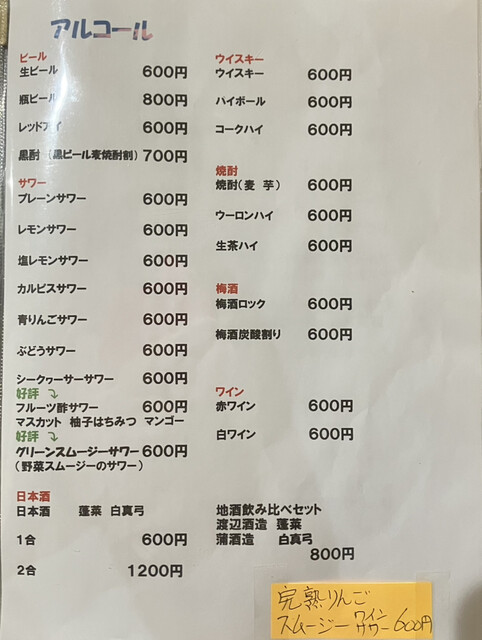 アルコール
ビール
生ビール 600円
瓶ビール 800円
レッドアイ 600円
黒酎 (黒ビール麦焼酎割) 700円
サワー
プレーンサワー 600円
レモンサワー 600円
塩レモンサワー 600円
カルピスサワー 600円
青りんごサワー 600円
ぶどうサワー 600円
シークヮーサーサワー 600円
好評
フルーツ酢サワー 600円
マスカット 柚子はちみつ マンゴー
好評
グリーンスムージーサワー 600円
(野菜スムージーのサワー)
日本酒
日本酒 蓬莱 白真弓
1合 600円
2合 1200円
ウイスキー
ウイスキー 600円
ハイボール 600円
コークハイ 600円
焼酎
焼酎(麦 芋) 600円
ウーロンハイ 600円
生茶ハイ 600円
梅酒
梅酒ロック 600円
梅酒炭酸割り 600円
ワイン
赤ワイン 600円
白ワイン 600円
地酒飲み比べセット
渡辺酒造 蓬莱
蒲酒造 白真弓
800円
完熟りんご
スムージー ワイン サワー 600円